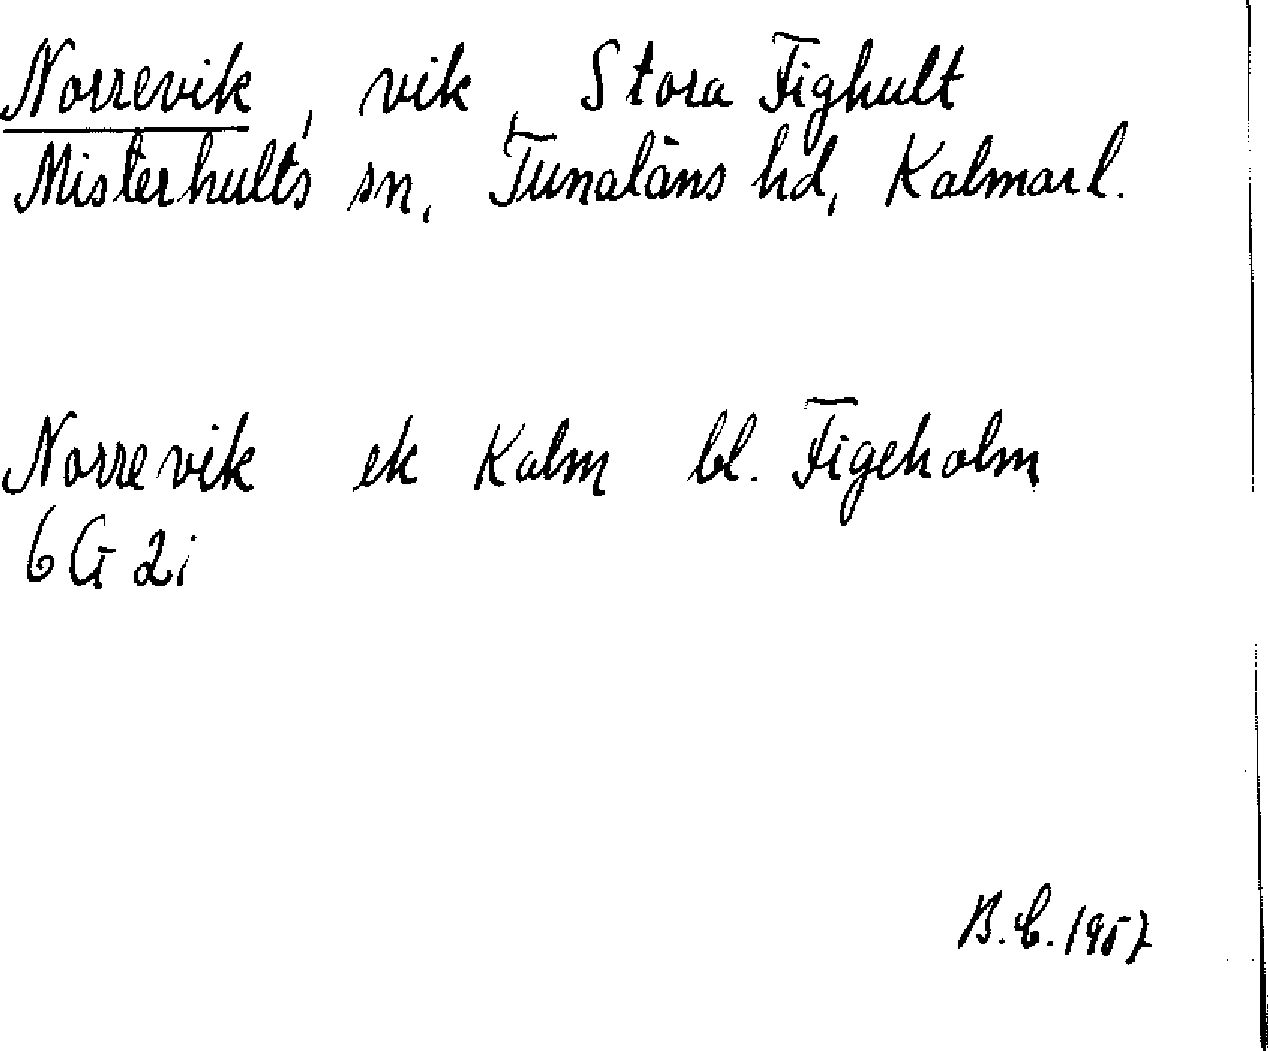 Norrevik, vik, Stora Fighult
Misterhults sn, Tunaläns hd, Kalmar l.
Norrevik ek Kalm bl. Figeholm
6 G 2i
B.C. 1957